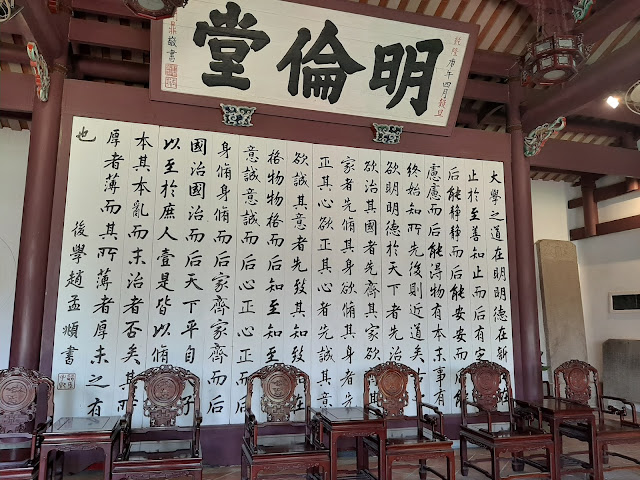 明倫堂
乾隆庚午四月穀旦
鼎敬書
大學之道在明明德在新
止於至善知止而后有定
后能靜靜而后能安安而后能
慮慮而后能得物有本末事有
終始知所先後則近道矣古
欲明明德於天下者先治
欲治其國者先齊其家欲
家者先脩其身欲脩其身者先
正其心欲正其心者先誠其
欲誠其意者先致其知致知在
格物物格而后知至知至
意誠意誠而后心正心正而后
身脩身脩而后家齊家齊而后
國治國治而后天下平自天子
以至於庶人壹是皆以脩
本其本亂而末治者否矣其所
厚者薄而其所薄者厚未之有
也
後學趙孟頫書